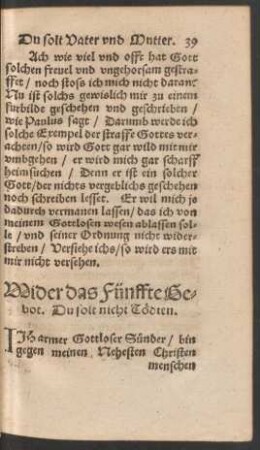 Du solt Vater vnd Mutter. 39
Ach wie viel vnd offt hat Gott
solchen freuel vnd vngehorsam gestraf-
fet / noch stoss ich mich nicht daran.
Nu ist solchs gewislich mir zu einem
furbilde geschehen vnd geschrieben /
wie Paulus sagt / Darumb werde ich
solche Exempel der straffe Gottes ver-
achten / so wird Gott gar wild mit mir
vmbgehen / er wird mich gar scharff
heimsuchen / Denn er ist ein solcher
Gott / der nichts vergeblichs geschehen
noch schreiben lesset. Er wil mich je
dadurch vermanen lassen / das ich von
meinem Gottlosen wesen ablassen sol-
le / vnd seiner Ordnung nicht wider-
streben / Versehe ichs / so wird ers mit
mir nicht versehen.
Wider das Fünffte Ge-
bot. Du solt nicht Tödten.
ICH armer Gottloser Sünder / bin
gegen meinen Nehesten Christen
menschen